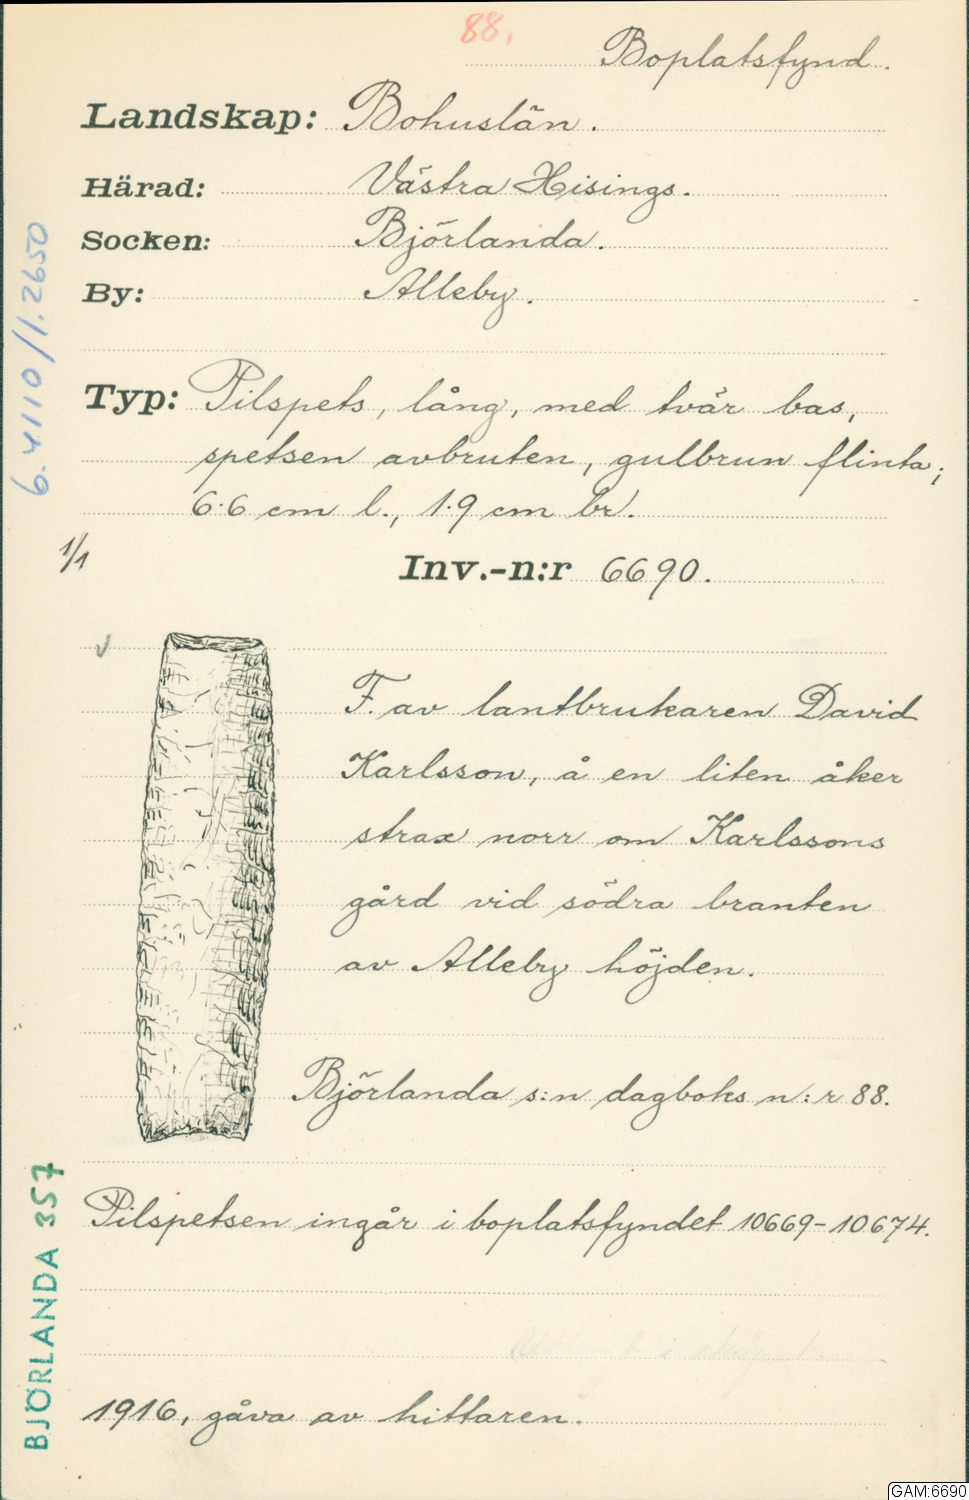 88.
Boplatsfynd.
Landskap: Bohuslän.
Härad: Västra Hisings.
Socken: Björlanda.
By: Alleby.
6.4110/1.2650
Typ: Pilspets, lång, med tvär bas,
spetsen avbruten, gulbrun flinta;
6.6 cm l., 1.9 cm br.
1/1
Inv.-n:r 6690.
F. av lantbrukaren David
Karlsson, å en liten åker
strax norr om Karlssons
gård vid södra branten
av Alleby höjden.
Björlanda s:n dagboks n:r 88.
BJÖRLANDA 357
Pilspetsen ingår i boplatsfyndet 10669-10674.
1916, gåva av hittaren.
GAM:6690